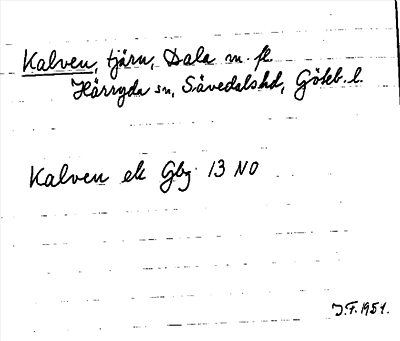 Kalven, tjärn, Dala m. fl.
Härryda sn, Sävedals hd, Göteb. l.
Kalven ek Gbg 13 NO
J.F. 1951.